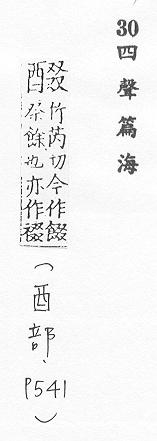 30四聲篇海
醊竹芮切今作餟
祭餘也亦作裰
(酉部、P541)